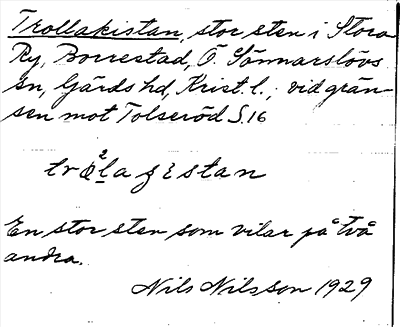 Trollakistan, stor sten i Stora
Ry, Borrestad, Ö. Sönnarslövs
sn, Gärds hd, Krist. l., vid grän-
sen mot Tolseröd S.16
En stor sten som vilar på två
andra.
Nils Nilsson 1929